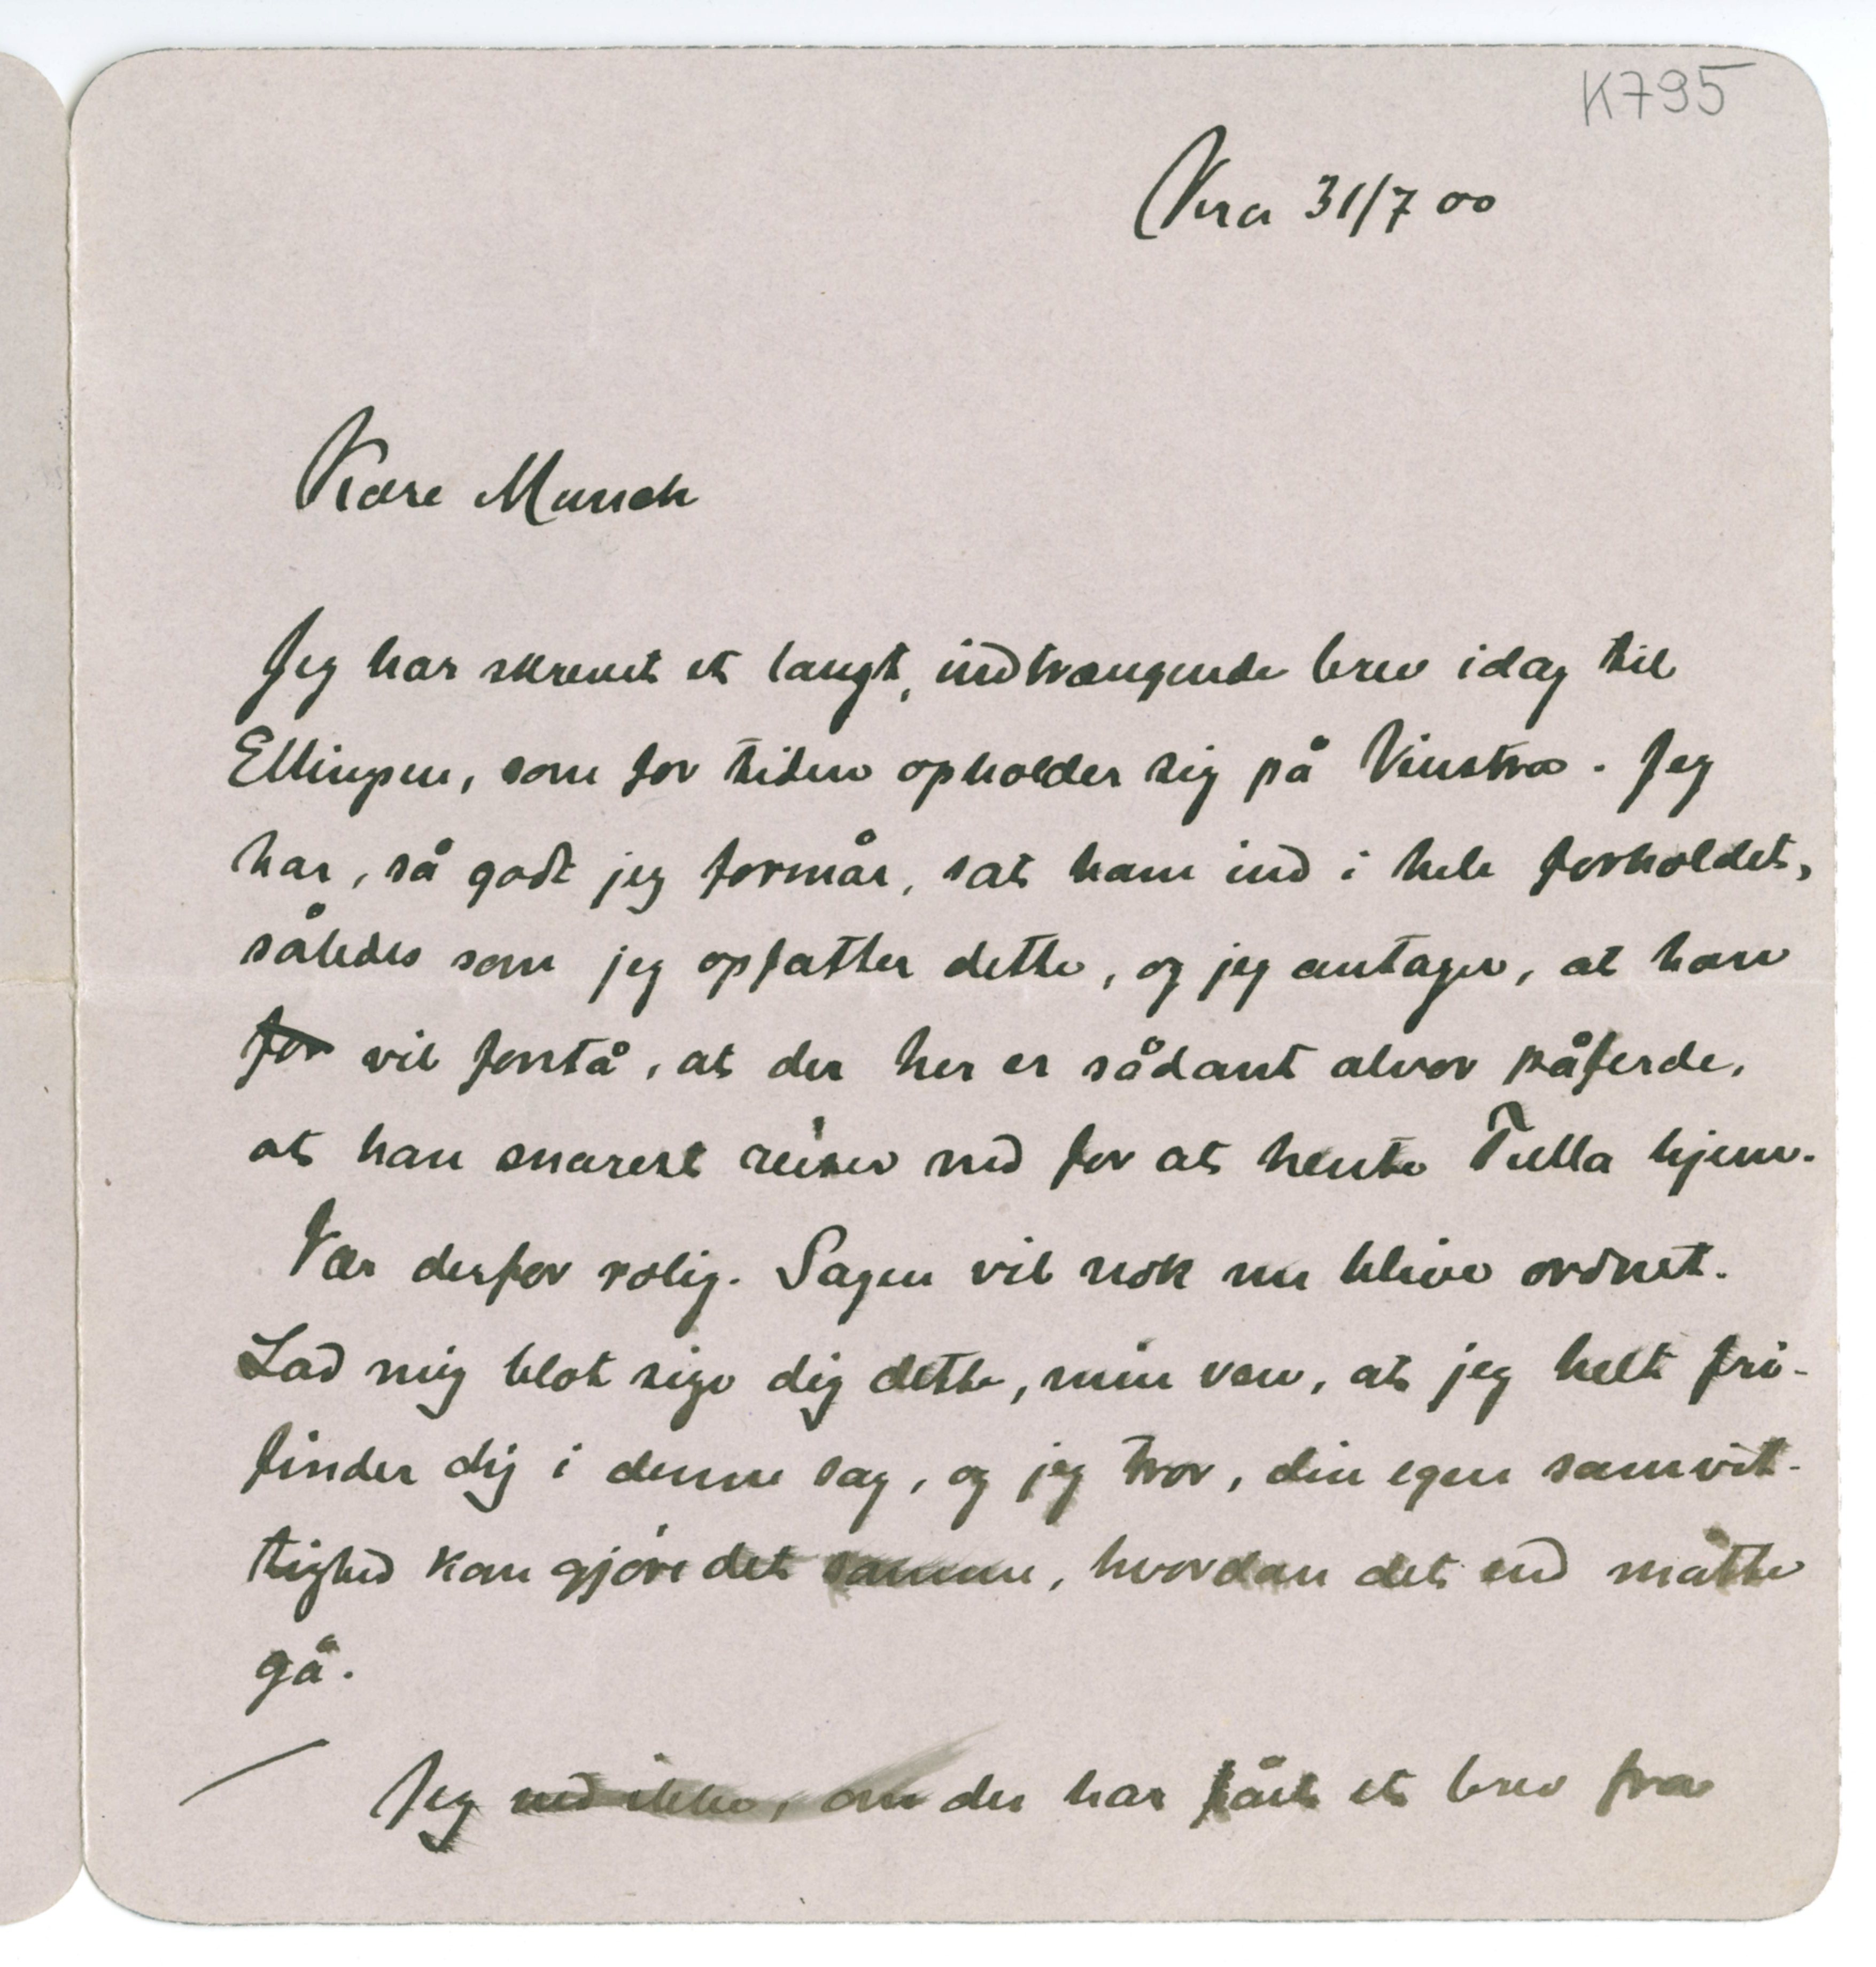 K795
Vera 31/7 00
Kære Munch
Jeg har skrevet et langt, indtrængende brev idag til
Ellingsen, som for tiden opholder sig på Vinstra. Jeg
har, så godt jeg formår, sat ham ind i hele forholdet,
således som jeg opfatter dette, og jeg antager, at han
for vil forstå, at der her er sådant alvor påferde,
at han snarest reiser ned for at hente Tulla hjem.
Vær derfor rolig. Sagen vil nok nu blive ordnet.
Lad mig blot sige dig dette, min ven, at jeg helt fri-
finder dig i denne sag, og jeg tror, din egen samvit-
tighed kan gjøre det samme, hvordan det end måtte
gå.
Jeg ved ikke, om du har fået et brev fra